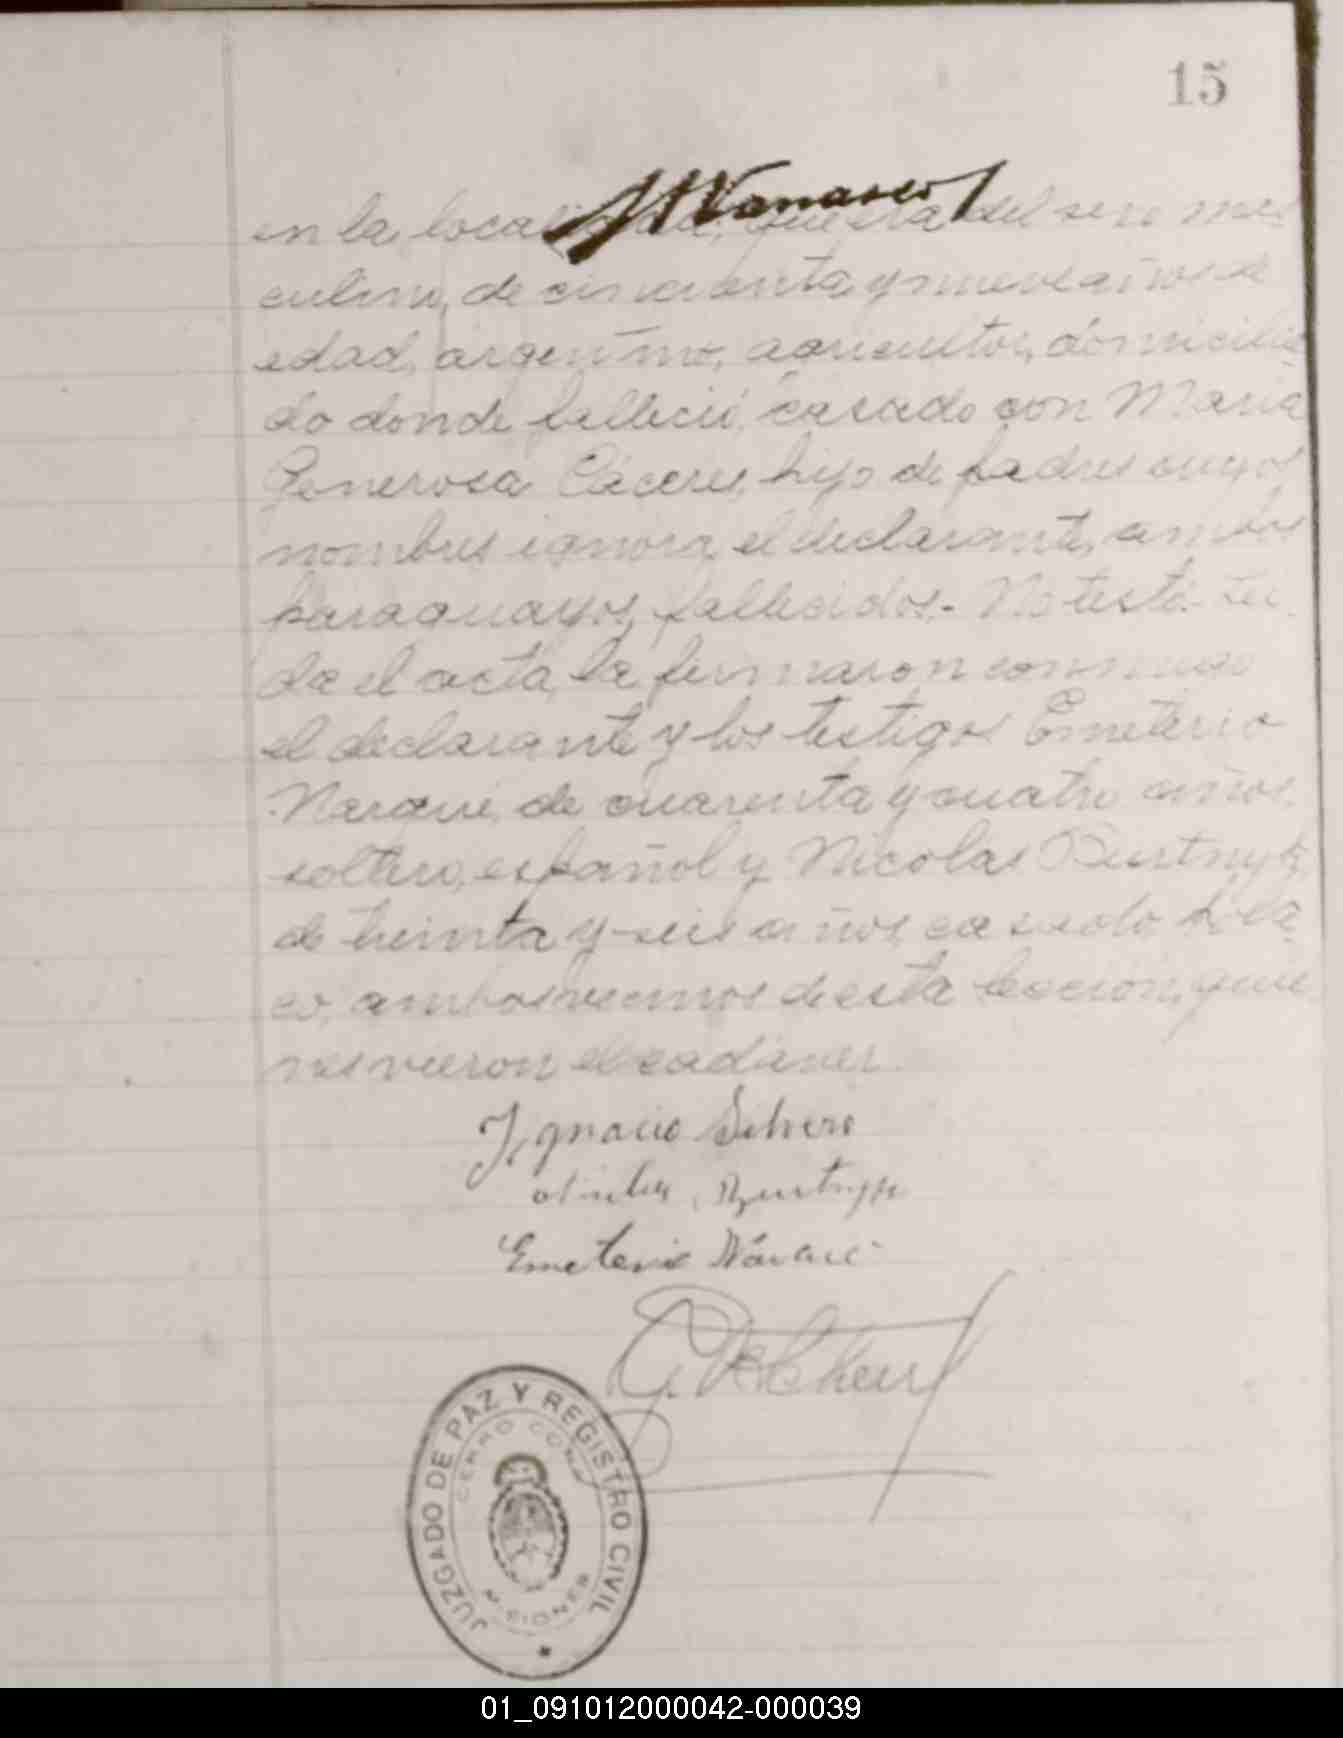 15
en la localidad, que era del sexo mas
culino, de cincuenta y nueve años de
edad, argentino, agricultor, domicilia
do donde falleció, casado con Maria
Generosa Cáceres, hijo de padres cuyos
nombres ignora el declarante, ambos
paraguayos, fallecidos.- No testó. Leí
da el acta, la firmaron conmigo
el declarante y los testigos Emeterio
de cuarenta y cuatro años,
soltero, español y Nicolas
de treinta y seis años, casado,
ambos vecinos de esta Sección, quie
nes vieron el cadáver.
Ignacio Silvero
Emeterio
JUZGADO DE PAZ Y REGISTRO CIVIL
CERRO CORÁ
MISIONES
01_091012000042-000039